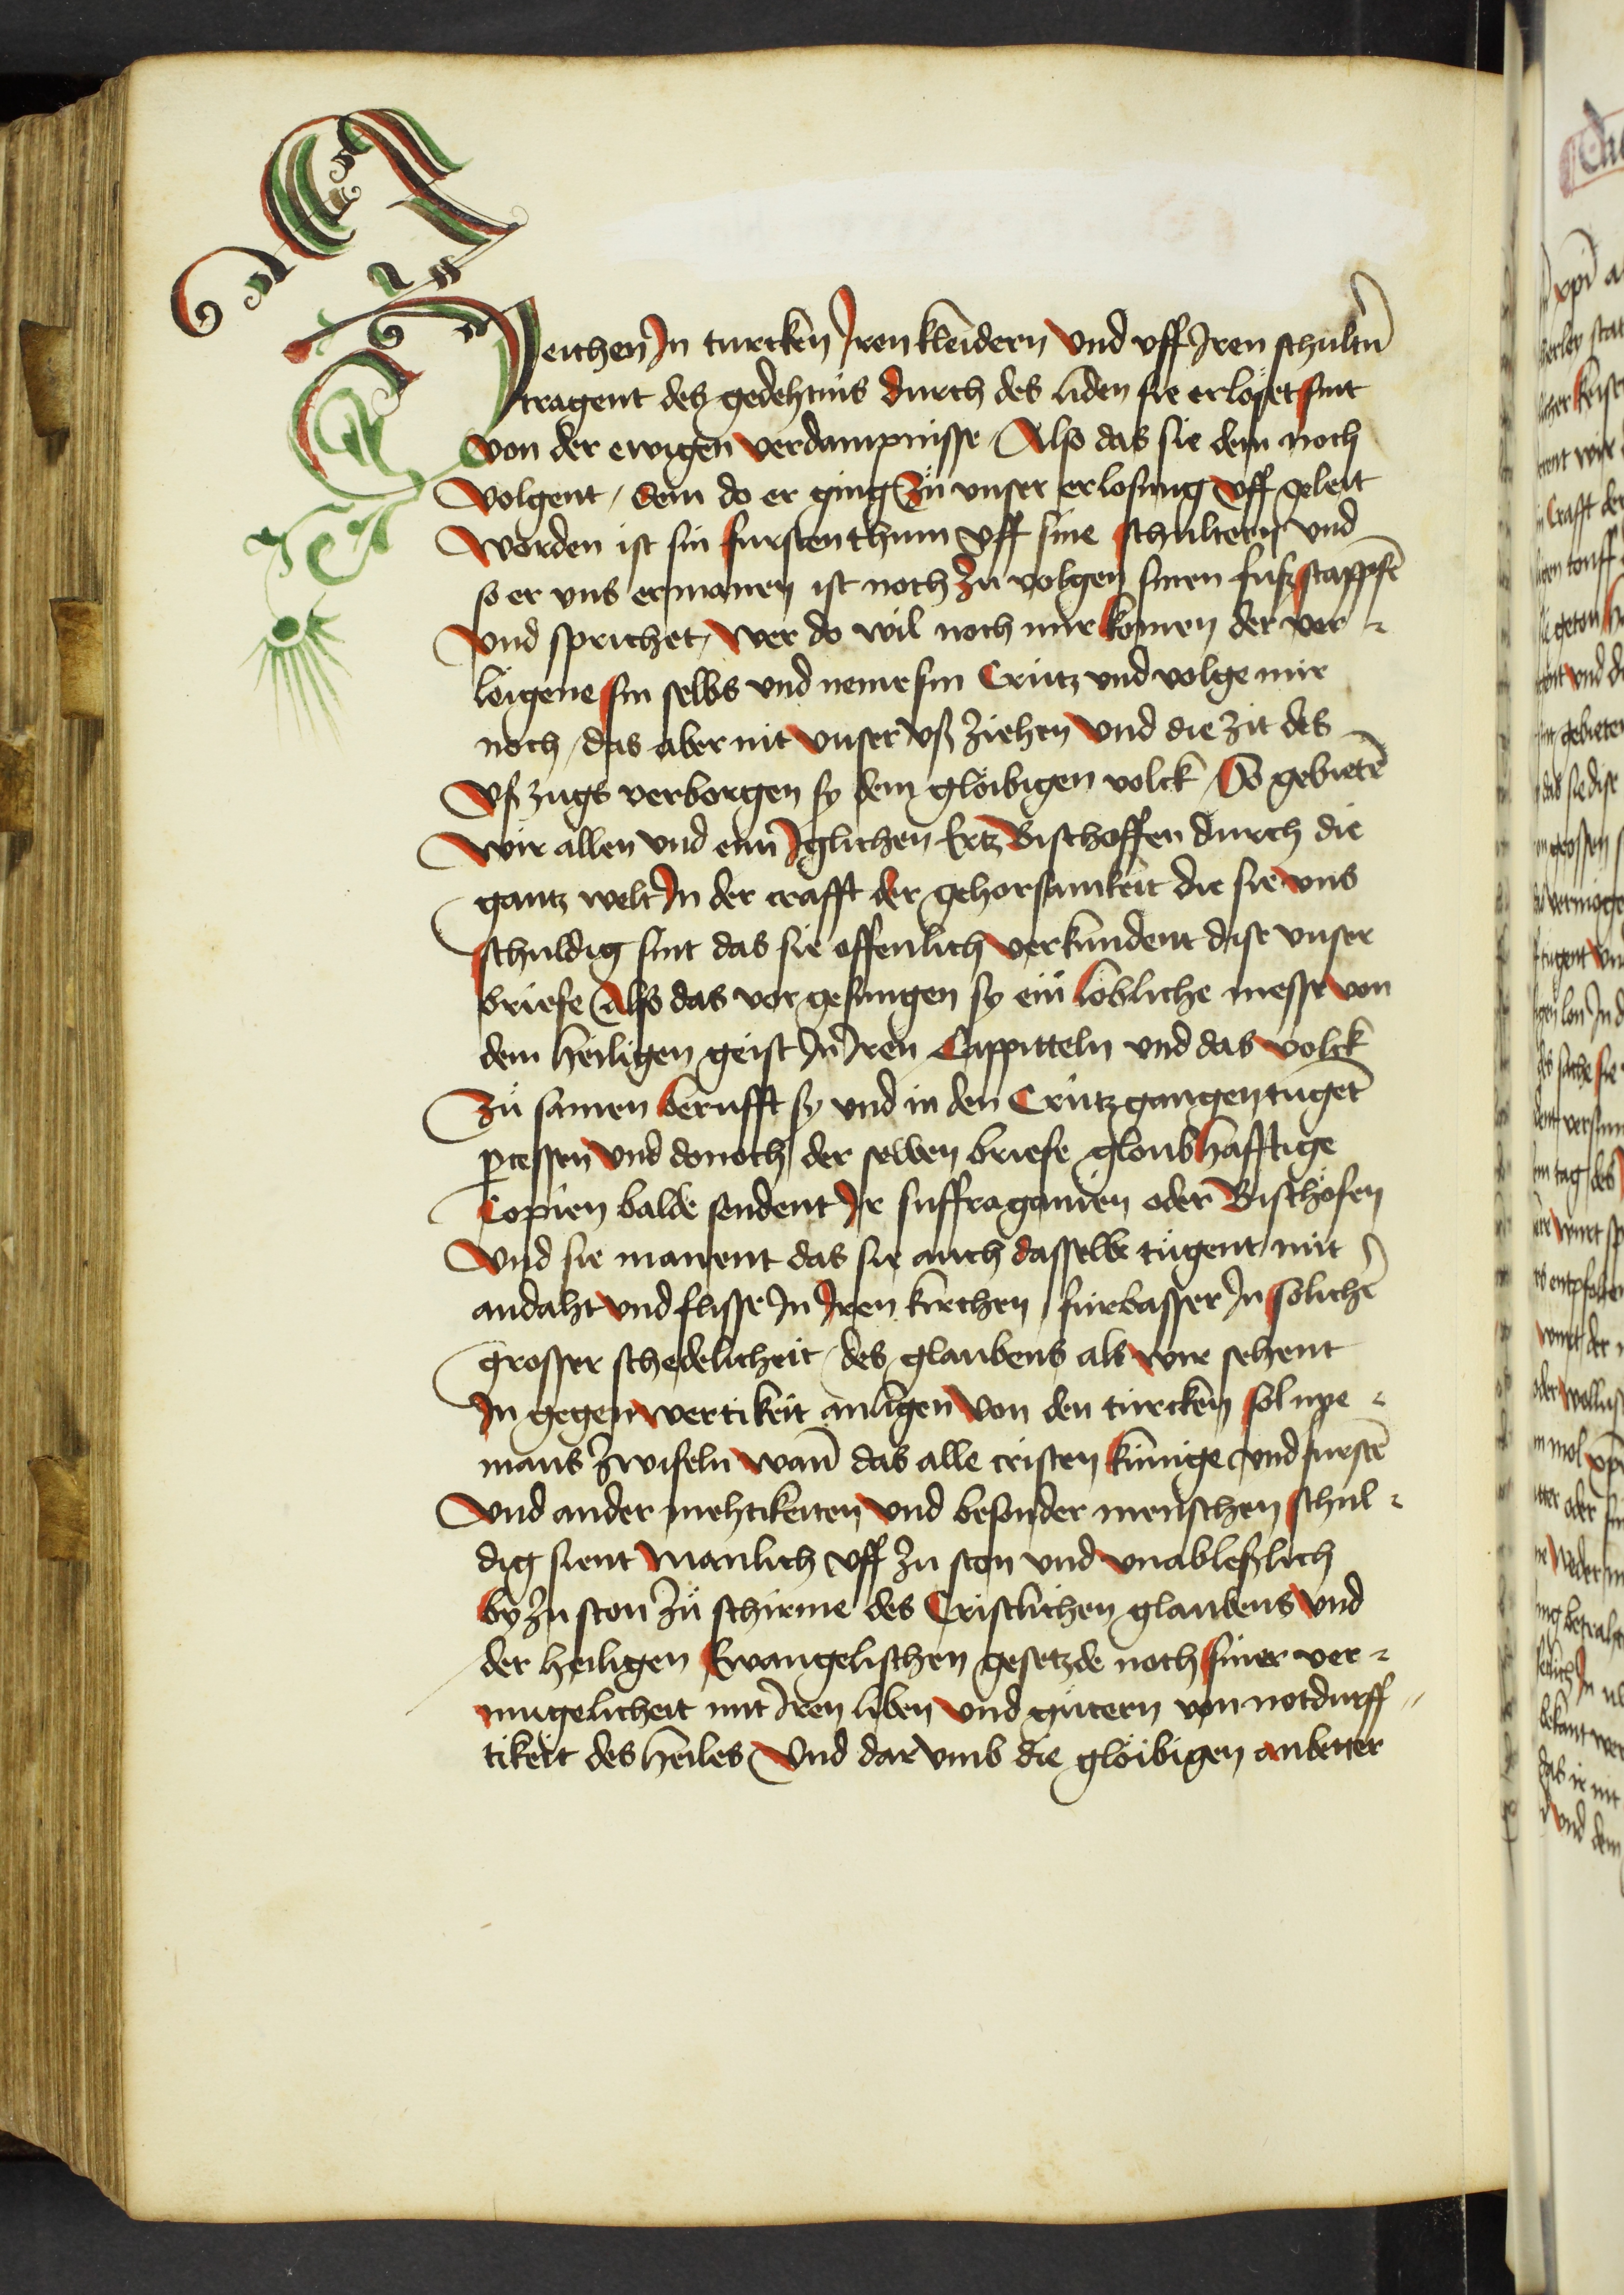 Zeichen In turcken Iren kleidern vnd vff Iren schultn̄
tragent des gedehtnis durch des liden sie erlöset sint
von der ewigen verdampnisse Also das sie dem noch
volgent / dem do er ging zů vnser erlosung vff geleit
worden ist sin furstenthum vff sine schultern vnd
so er vns ermanen ist noch zu volgen sinen fußstappfē
vnd sprichet / wer do wil noch mir komen der ver⸗
löigene sin selbs vnd neme sin Crütz vnd volge mir
noch / das aber nit vnser vß ziehen vnd die zit des
vßzugs verborgen sy dem glöibigen volck So gebietē
wir allen vnd eim Iglichen Ertz Bischoffen durch die
gantz welt In der crafft der gehorsamkeit die sie vns
schuldig sint das sie offenlich verkundent dise vnser
briefe Also das vor gesungen sy ein löbliche messe von
dem heiligen geist In Iren Cappitteln vnd das volck
zů samen berufft sy vnd in den Crützgangen tugēt
ꝓcessen vnd donoch der selben briefe gloubhafftige
Copien balde sendent Ir suffraganien oder Bischöfen
vnd sie manent das sie auch dasselbe tügent mit
andaht vnd flisse In Iren kirchen / fürbasser In solichē
grosser schedelicheit / des glaubens als wir sehent
In gegenwertikeit anligen von den türcken sol nye⸗
mans zwifeln wan̄ das alle cristen künige vnd furstē
vnd ander mehtikeiten vnd besonder menschen schul⸗
dig sient manlich vff zu ston vnd vnableßlich
by zu ston zů schirme des Cristlichen glaubens vnd
der heiligen Ewangelischen gesetzde noch siner ver⸗
mugelicheit mit Iren liben vnd gütern von notdurff⸗
tikeit des heiles Vnd dar vmb die glöibigen anbetter